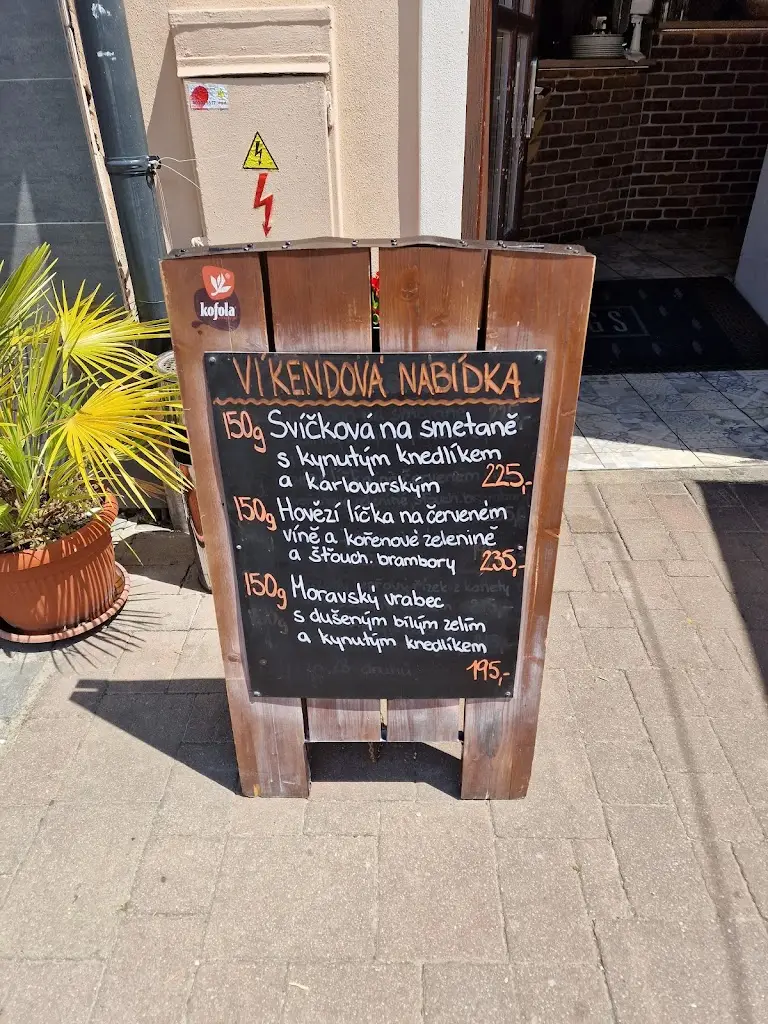 kofola
VÍKENDOVÁ NABÍDKA
150g Svíčková na smetaně
s kynutým knedlíkem
a karlovarským 225,-
150g Hovězí líčka na červeném
víně a kořenové zelenině
a šťouch. brambory 235,-
150g Moravský vrabec
s dušeným bílým zelím
a kynutým knedlíkem
195,-